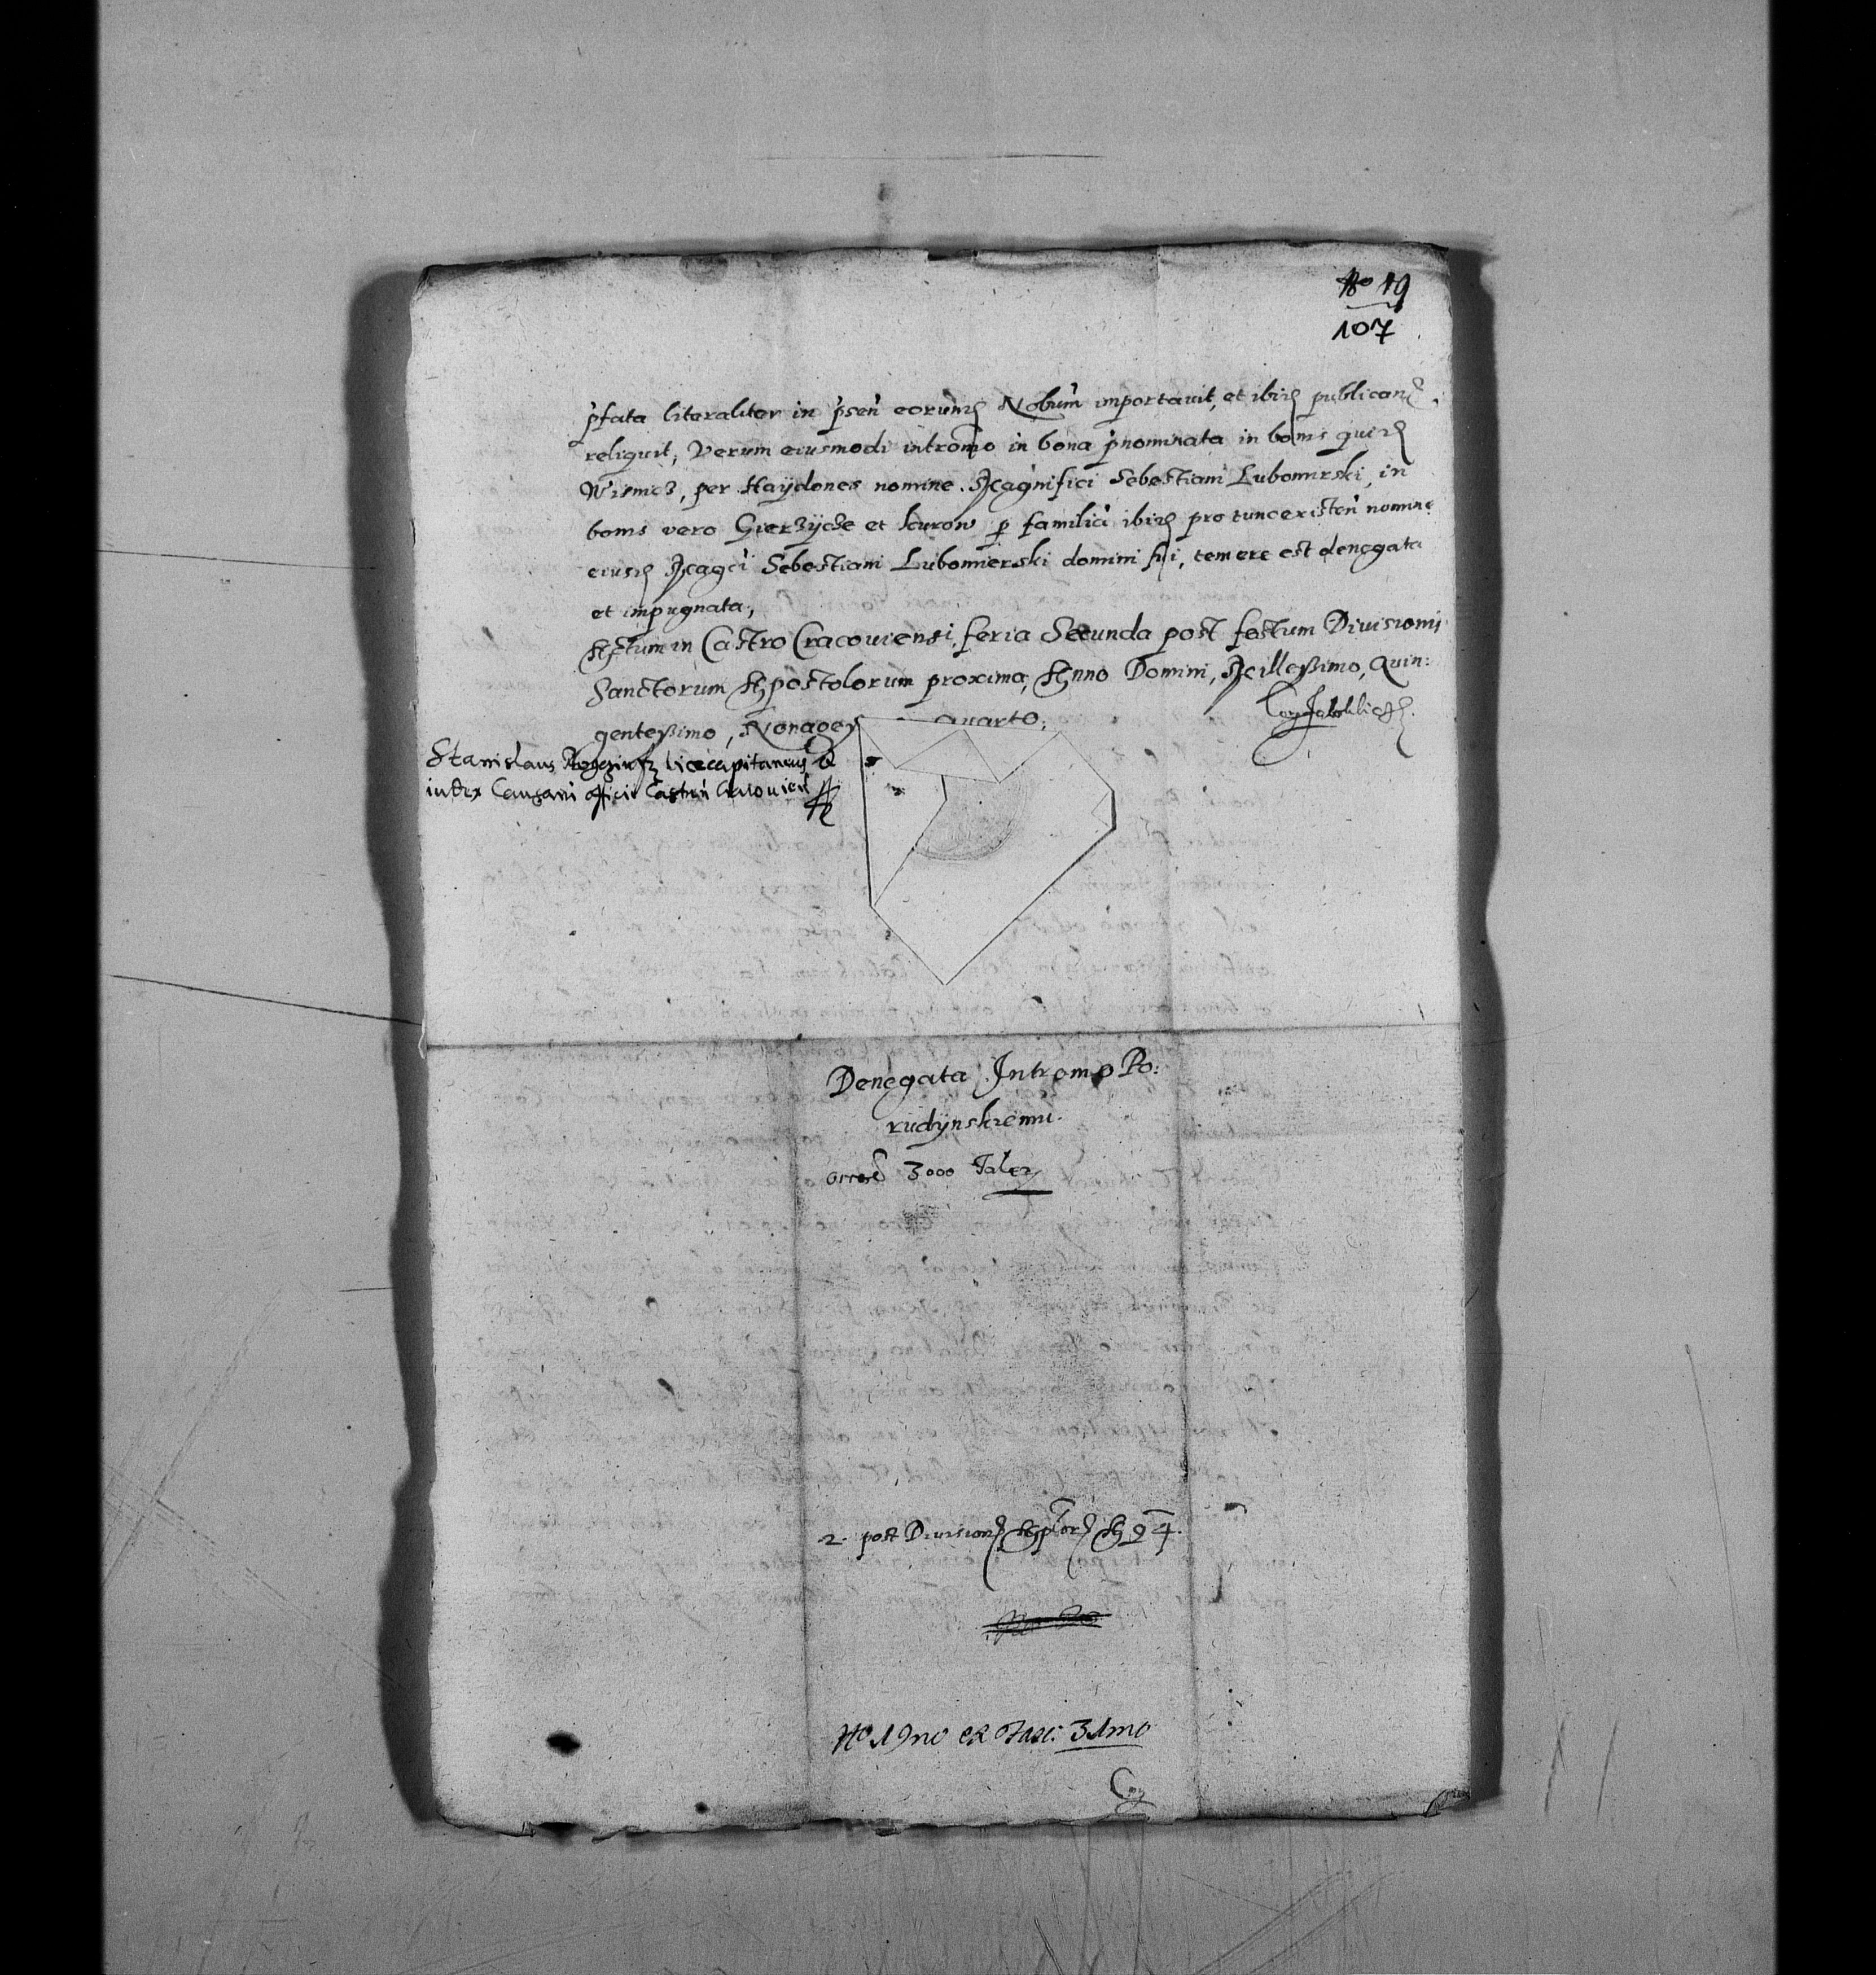 No 19
107
pfata literaliter in psen eorund Nobium importauit, et ibid publicand
reliquit, Verum eiusmodi intromo in bona pnominata in bonis quid
Wismcz, per Haÿdones nomine Magnifici Sebestiani Lubomirski, in
bonis vero Gierzÿcze et kurow p familia ibid pro tunc existen nomine
eiusd Magci Sebestiani Lubomierski domini sui, temere est denegata
et impugnata,
Actum in Castro Cracouiensi, feria Secunda post festum Diuisionis
Sanctorum Apostolorum proxima, Anno Domini, Millessimo, Quin:
gentessimo, Nonages quarto.
Stanislaus vicecapitaneus &
iudex Causarum officii Castrn Cracouien
Denegata Intromo Po:
rudÿnskiemu.
3000 Taler
2. post Division Aplor A 94.
No 19no ex Fasc: 31mo